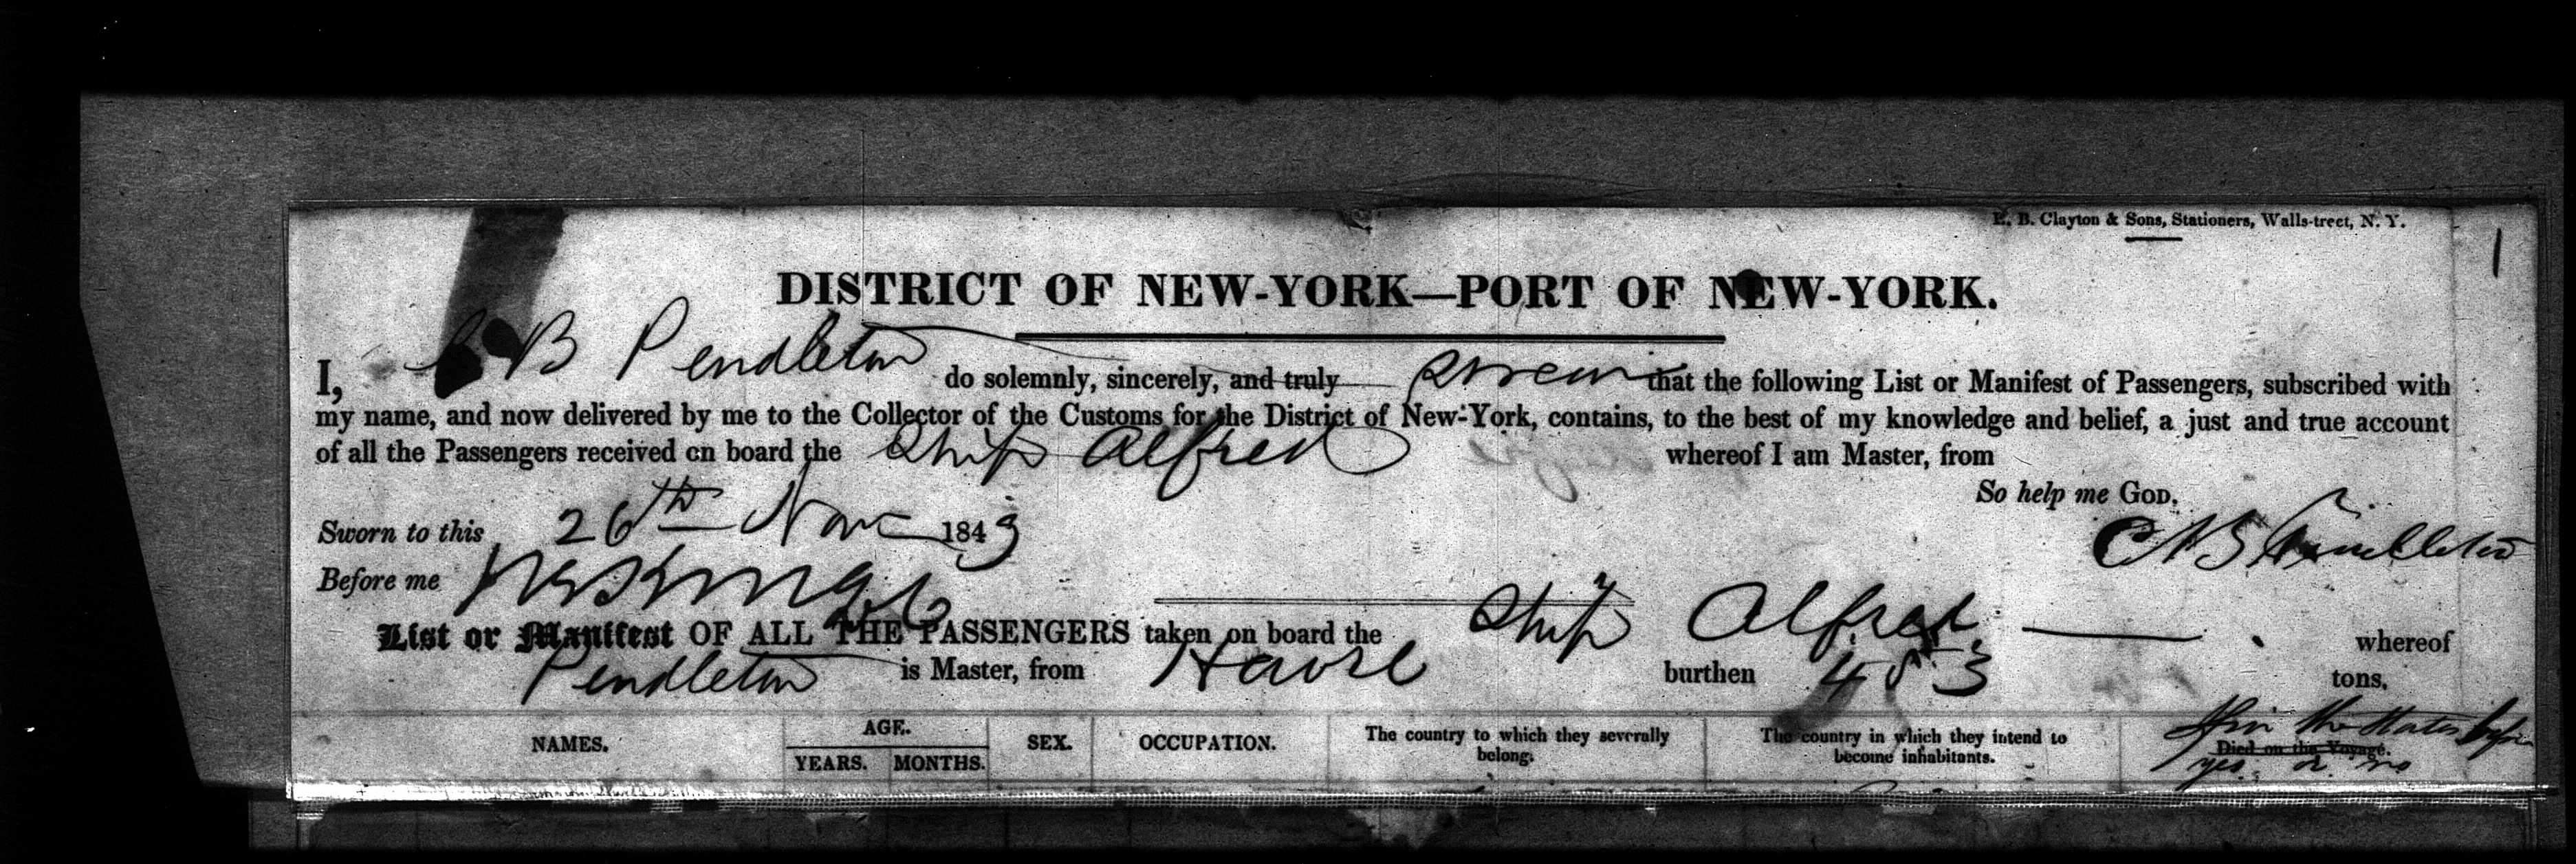 E. B. Clayton & Sons, Stationers, Walls-treet, N. Y.
1
DISTRICT OF NEW-YORK—PORT OF NEW-YORK.
I, C B Pendleton do solemnly, sincerely, and truly swear that the following List or Manifest of Passengers, subscribed with
my name, and now delivered by me to the Collector of the Customs for the District of New-York, contains, to the best of my knowledge and belief, a just and true account
of all the Passengers received on board the Ship Alfred whereof I am Master, from
So help me GOD.
Sworn to this 26th Nov 1843
Before me
List or Manifest OF ALL THE PASSENGERS taken on board the Ship Alfred whereof
Pendleton is Master, from Havre burthen 453 tons.
NAMES. AGE. YEARS. MONTHS. SEX. OCCUPATION. The country to which they severally belong. The country in which they intend to become inhabitants. Died on the Voyage.
in the States before
yes or no